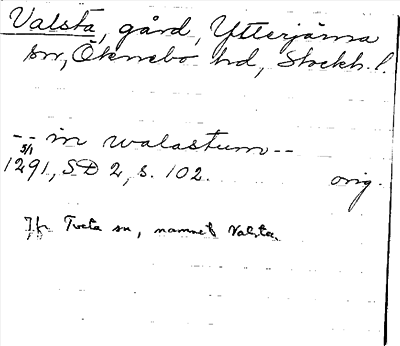 Valsta, gård, Ytterjärna
sn, Öknebo hd, Stockh. l.
-- in walastum --
5/1
1291, SD 2, s. 102. orig.
Jfr Tveta sn, namnet Valsta.